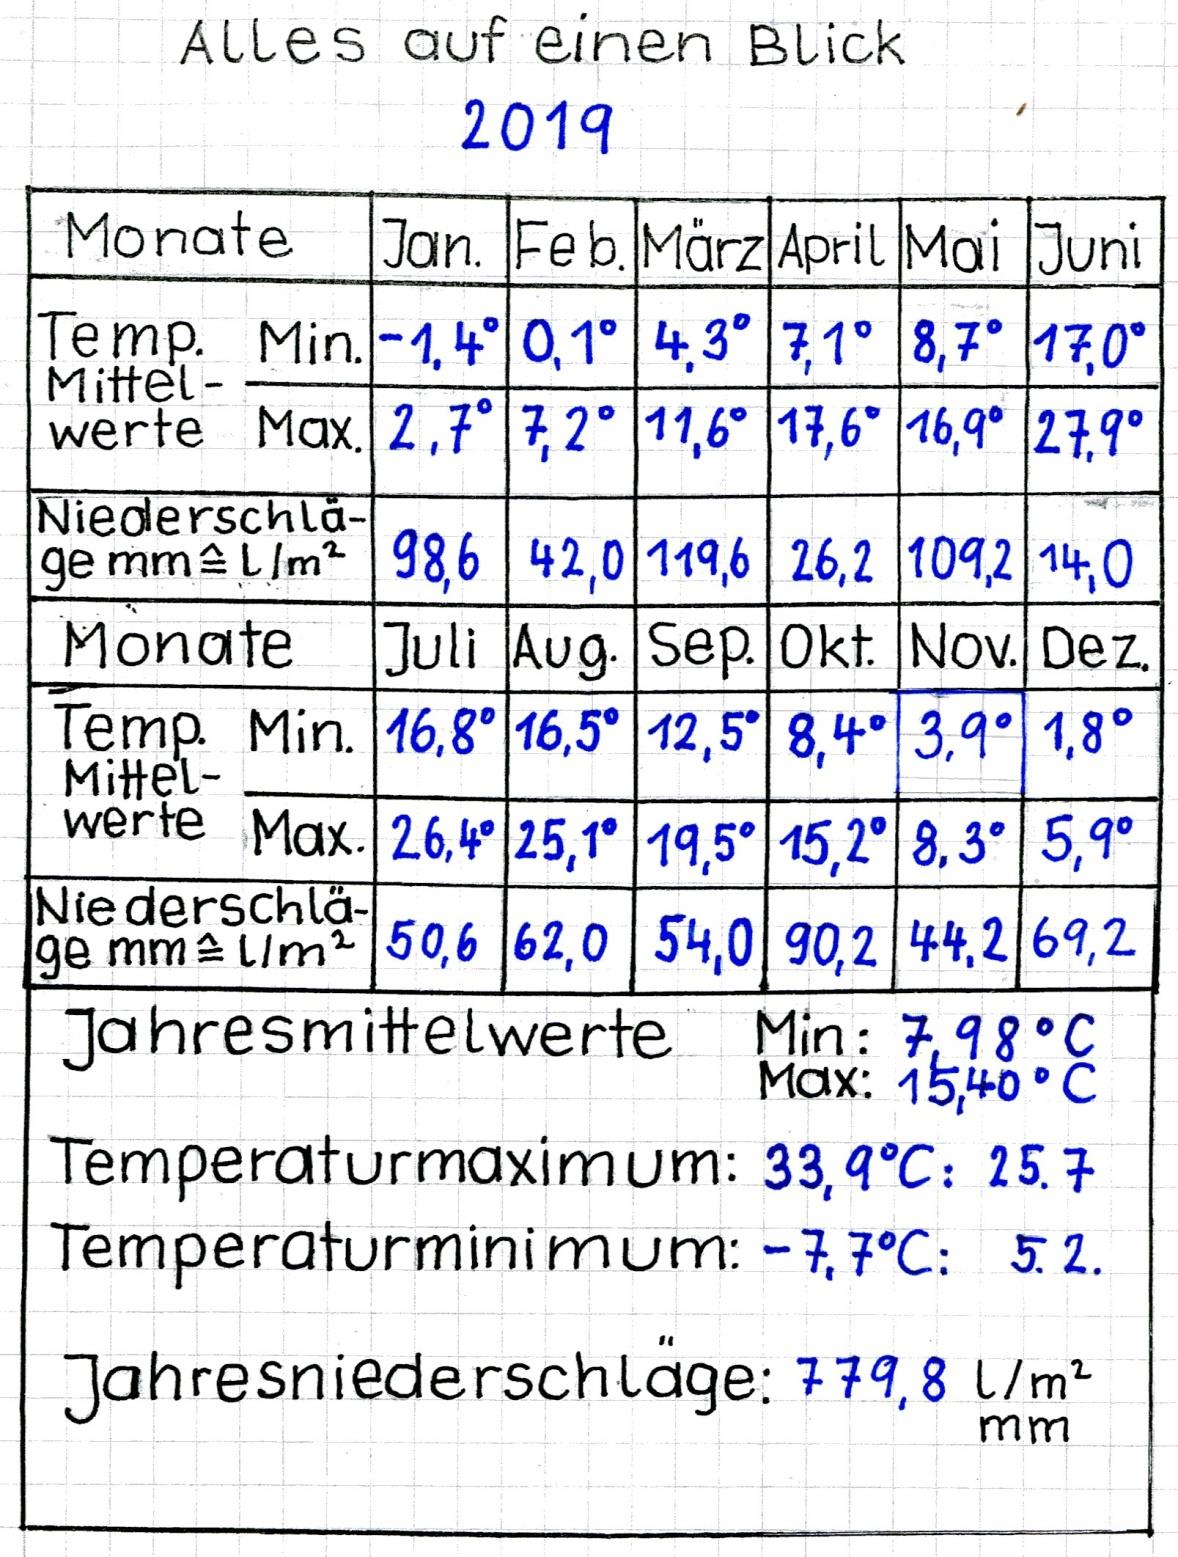 Alles auf einen Blick
2019
Monate Jan. Feb. März April Mai Juni
Temp. Min. -1,4° 0,1° 4,3° 7,1° 8,7° 17,0°
Mittel-
werte Max. 2,7° 7,2° 11,6° 17,6° 16,9° 27,9°
Niederschlä-
ge mm ≙ l/m² 98,6 42,0 119,6 26,2 109,2 14,0
Monate Juli Aug. Sep. Okt. Nov. Dez.
Temp. Min. 16,8° 16,5° 12,5° 8,4° 3,9° 1,8°
Mittel-
werte Max. 26,4° 25,1° 19,5° 15,2° 8,3° 5,9°
Niederschlä-
ge mm ≙ l/m² 50,6 62,0 54,0 90,2 44,2 69,2
Jahresmittelwerte Min: 7,98°C
Max: 15,40°C
Temperaturmaximum: 33,9°C: 25.7
Temperaturminimum: -7,7°C: 5.2.
Jahresniederschläge: 779,8 l/m²
mm